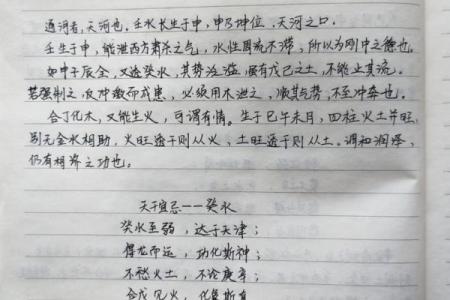 通河者，天河也。壬水长生于申，申乃坤位，天河之口。
壬生于申，能泄西方肃杀之气，水性周流不滞，所以为刚中之德也。
如申子辰全，又透癸水，其势泛滥，虽有戊己之土，不能止其流。
若强制之，反冲激而成患，必须用木泄之，顺其气势，不至冲奔也。
合丁化木，又能生火，可谓有情。生于巳午未月，四柱火土并旺，
别无金水相助，火旺透干则从火，土旺透干则从土。调和润泽，
仍有相济之功也。
天干宜忌——癸水
癸水至弱，达于天津；
得龙而运，功化斯神；
不愁火土，不论庚辛；
合戊见火，化象斯真